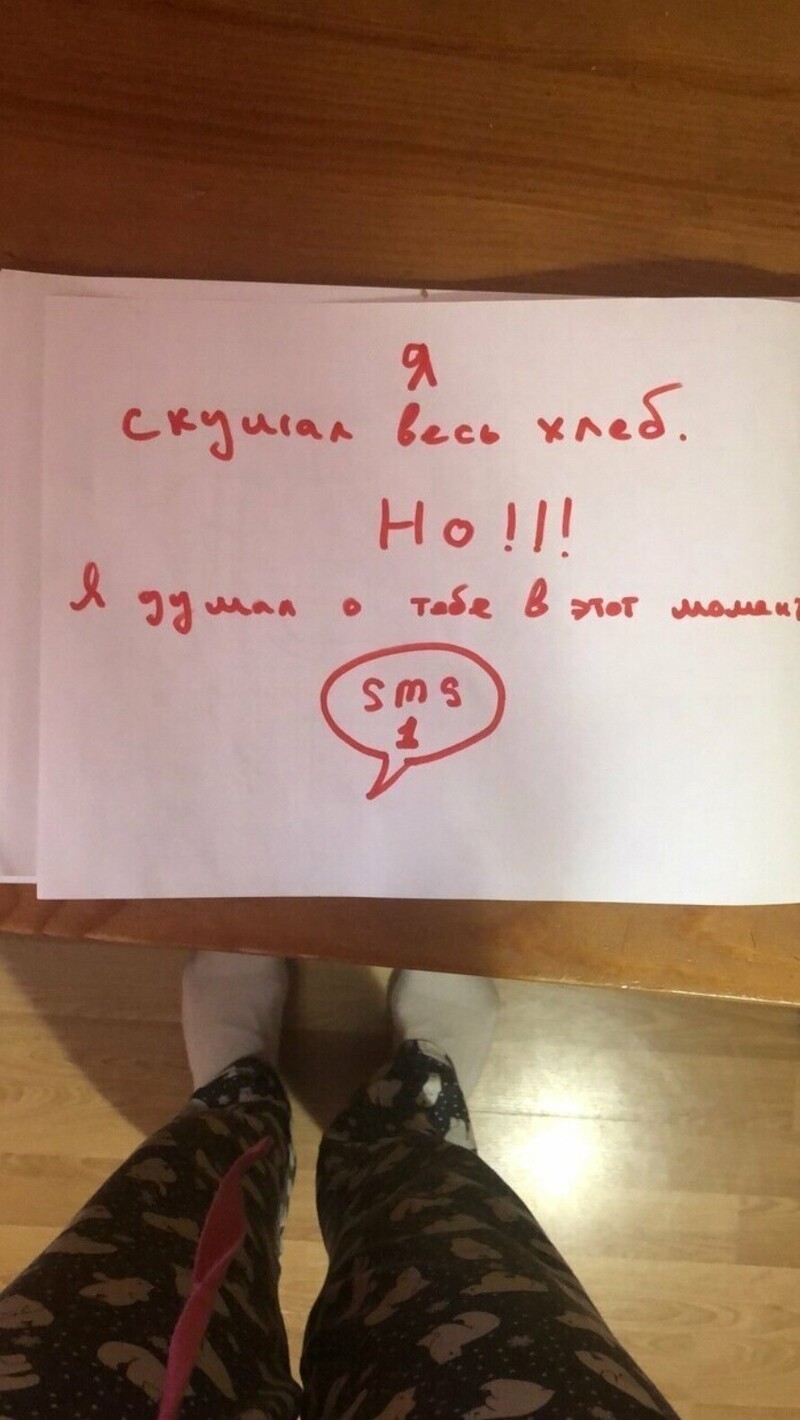 Я
скушал весь хлеб.
Но!!!
Я думал о тебе в этот момент
sms
1